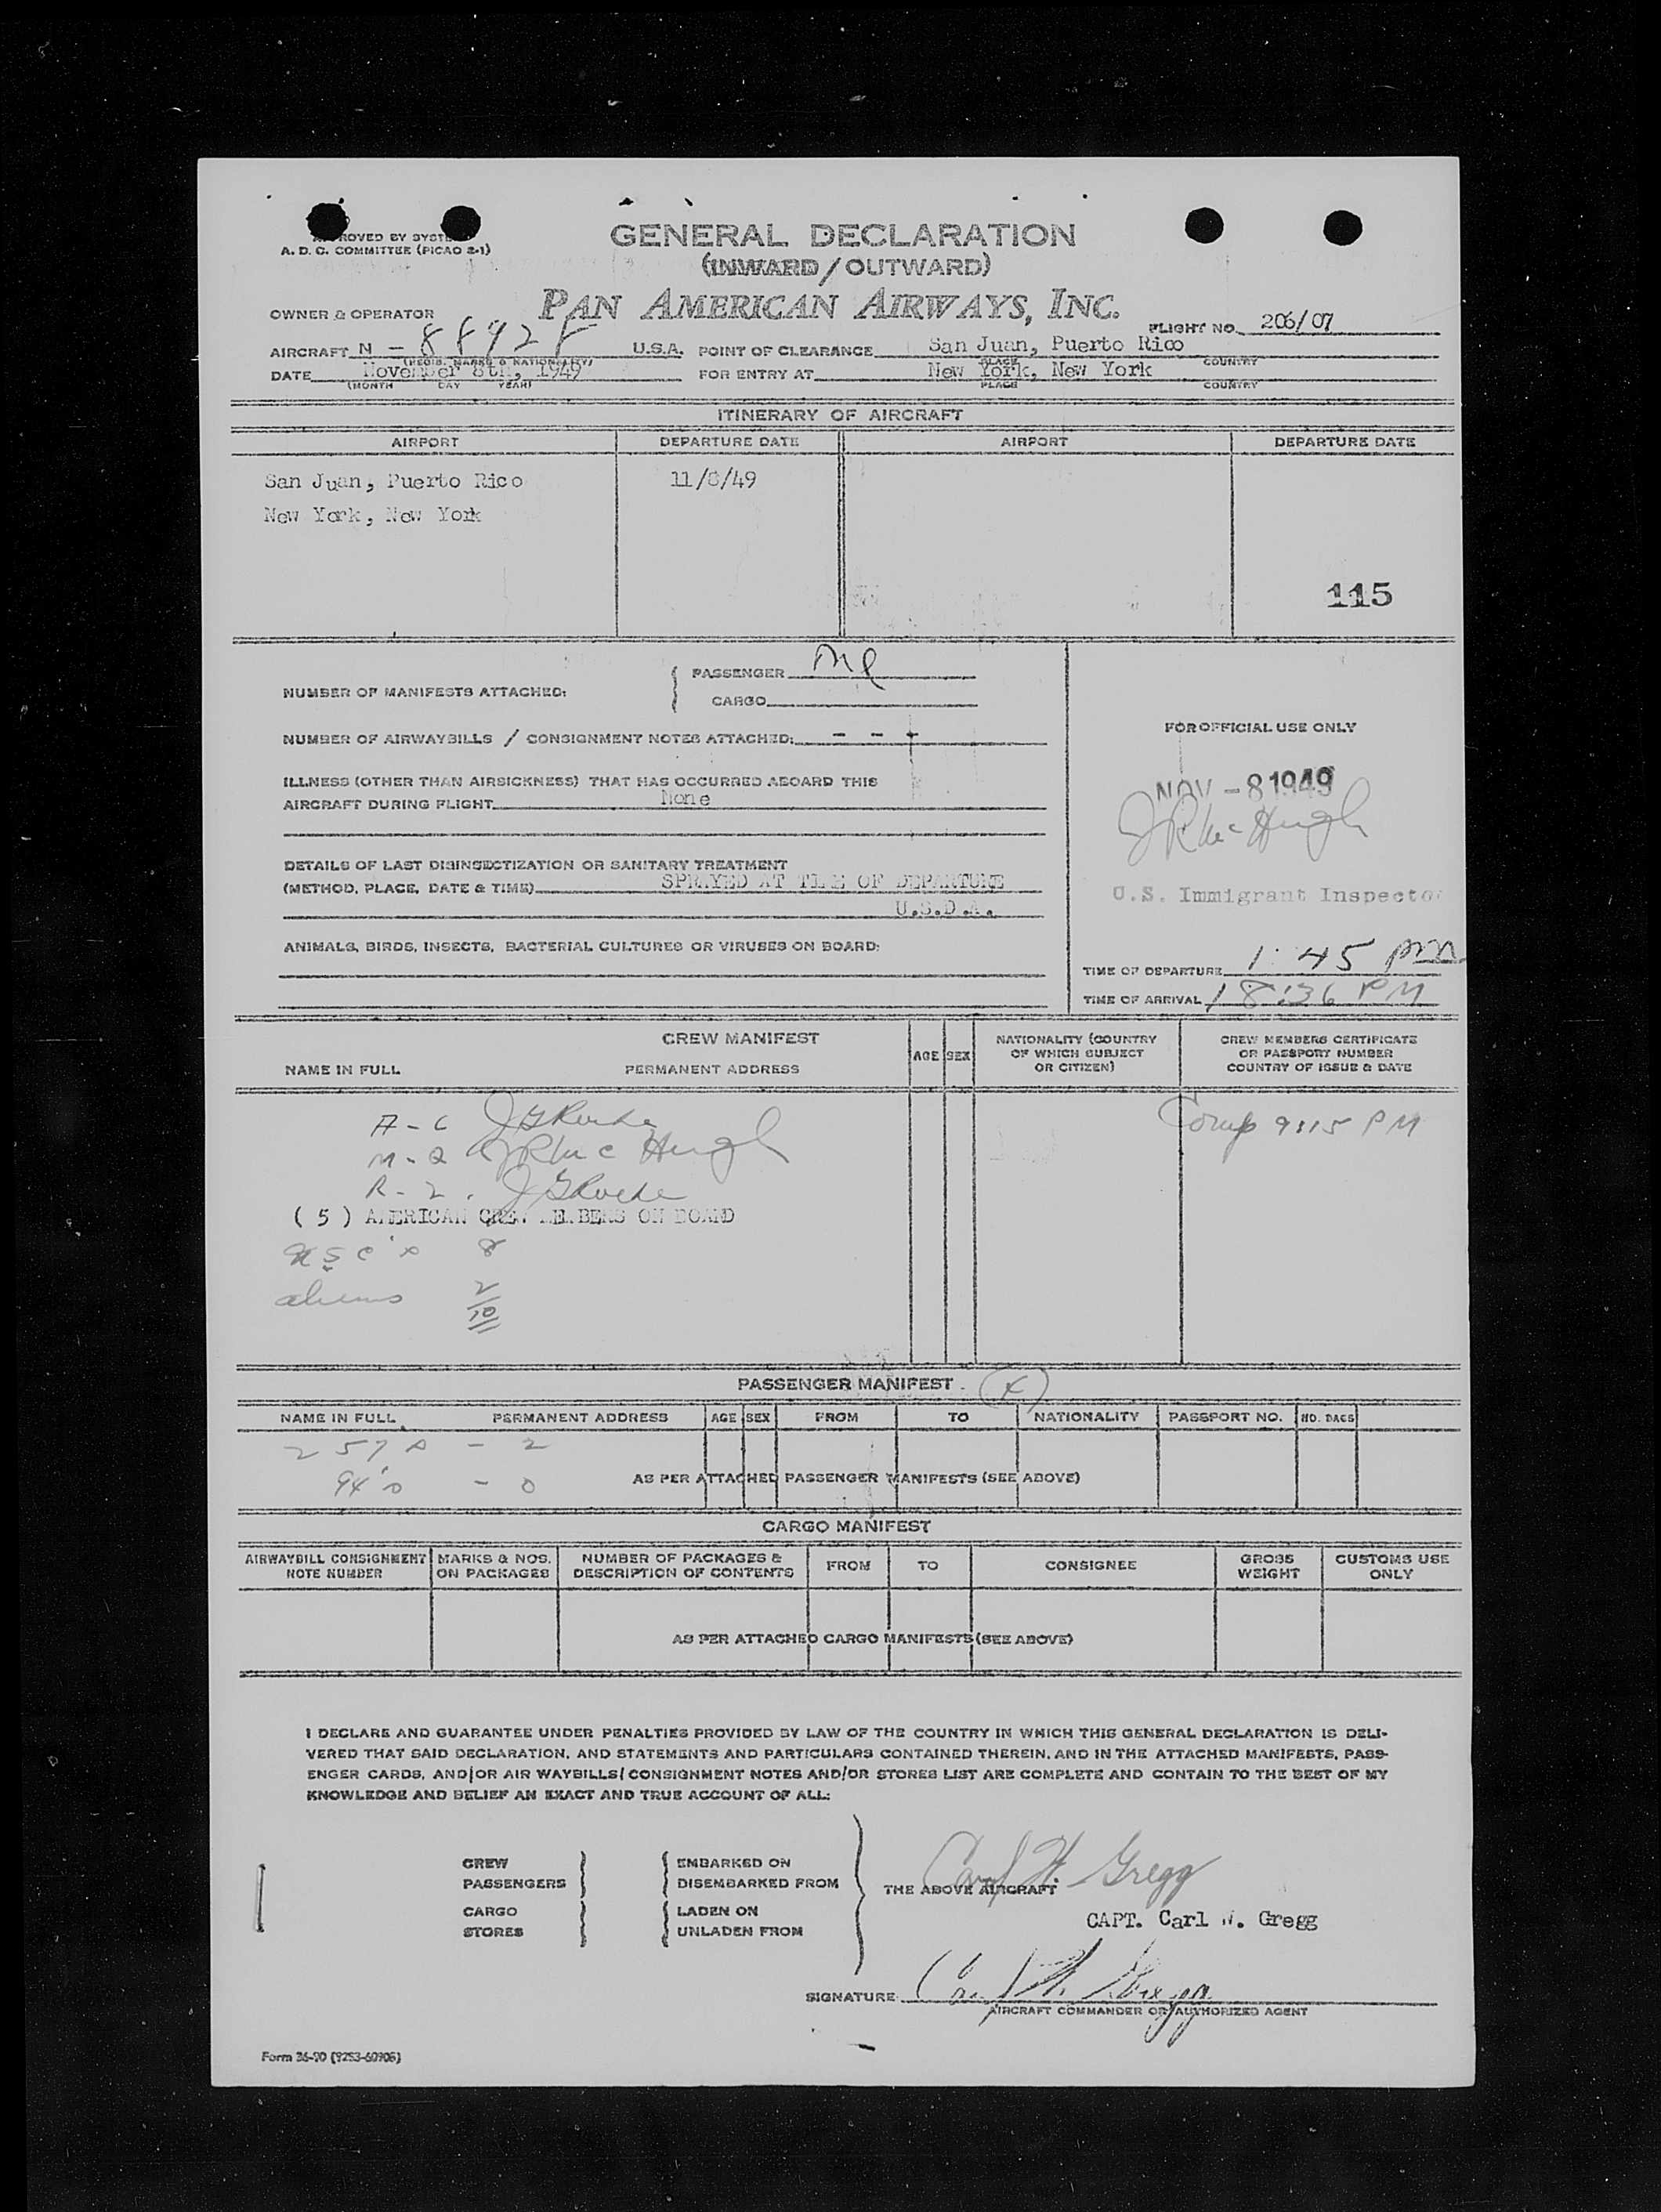 APPROVED BY SYSTEM
A. D. C. COMMITTEE (PICAO 2-1)
GENERAL DECLARATION
(INWARD / OUTWARD)
OWNER & OPERATOR PAN AMERICAN AIRWAYS, INC.
FLIGHT NO. 206/07
AIRCRAFT N - U.S.A. POINT OF CLEARANCE San Juan, Puerto Rico
(REGIS. MARKS & NATIONALITY) PLACE COUNTRY
DATE November 8th, 1949 FOR ENTRY AT New York, New York
(MONTH DAY YEAR) PLACE COUNTRY
ITINERARY OF AIRCRAFT
AIRPORT DEPARTURE DATE AIRPORT DEPARTURE DATE
San Juan, Puerto Rico 11/8/49
New York, New York
115
NUMBER OF MANIFESTS ATTACHED:
PASSENGER
CARGO
NUMBER OF AIRWAYBILLS / CONSIGNMENT NOTES ATTACHED: - - -
ILLNESS (OTHER THAN AIRSICKNESS) THAT HAS OCCURRED ABOARD THIS
AIRCRAFT DURING FLIGHT None
DETAILS OF LAST DISINSECTIZATION OR SANITARY TREATMENT
(METHOD, PLACE, DATE & TIME) SPRAYED AT TIME OF DEPARTURE
U.S.D.A.
ANIMALS, BIRDS, INSECTS, BACTERIAL CULTURES OR VIRUSES ON BOARD:
FOR OFFICIAL USE ONLY
NOV - 8 1949
J R McHugh
U.S. Immigrant Inspector
TIME OF DEPARTURE 1:45 pm
TIME OF ARRIVAL 8:36 PM
CREW MANIFEST
NAME IN FULL PERMANENT ADDRESS AGE SEX NATIONALITY (COUNTRY OF WHICH SUBJECT OR CITIZEN) CREW MEMBERS CERTIFICATE OR PASSPORT NUMBER COUNTRY OF ISSUE & DATE
A-C J G Roche
Comp 9:15 PM
M-2 J R McHugh
R-2. J G Roche
( 5 ) AMERICAN CREW MEMBERS ON BOARD
USC's 8
aliens 2
10
PASSENGER MANIFEST
NAME IN FULL PERMANENT ADDRESS AGE SEX FROM TO NATIONALITY PASSPORT NO. NO. BAGS
257's - 2
94's - 0
AS PER ATTACHED PASSENGER MANIFESTS (SEE ABOVE)
CARGO MANIFEST
AIRWAYBILL CONSIGNMENT NOTE NUMBER MARKS & NOS. ON PACKAGES NUMBER OF PACKAGES & DESCRIPTION OF CONTENTS FROM TO CONSIGNEE GROSS WEIGHT CUSTOMS USE ONLY
AS PER ATTACHED CARGO MANIFESTS (SEE ABOVE)
I DECLARE AND GUARANTEE UNDER PENALTIES PROVIDED BY LAW OF THE COUNTRY IN WHICH THIS GENERAL DECLARATION IS DELI-
VERED THAT SAID DECLARATION, AND STATEMENTS AND PARTICULARS CONTAINED THEREIN, AND IN THE ATTACHED MANIFESTS, PASS-
ENGER CARDS, AND/OR AIR WAYBILLS/CONSIGNMENT NOTES AND/OR STORES LIST ARE COMPLETE AND CONTAIN TO THE BEST OF MY
KNOWLEDGE AND BELIEF AN EXACT AND TRUE ACCOUNT OF ALL:
CREW EMBARKED ON
PASSENGERS DISEMBARKED FROM
CARGO LADEN ON
STORES UNLADEN FROM
THE ABOVE AIRCRAFT
Carl W. Gregg
CAPT. Carl W. Gregg
SIGNATURE Carl W. Gregg
AIRCRAFT COMMANDER OR AUTHORIZED AGENT
Form 36-90 (9253-60906)